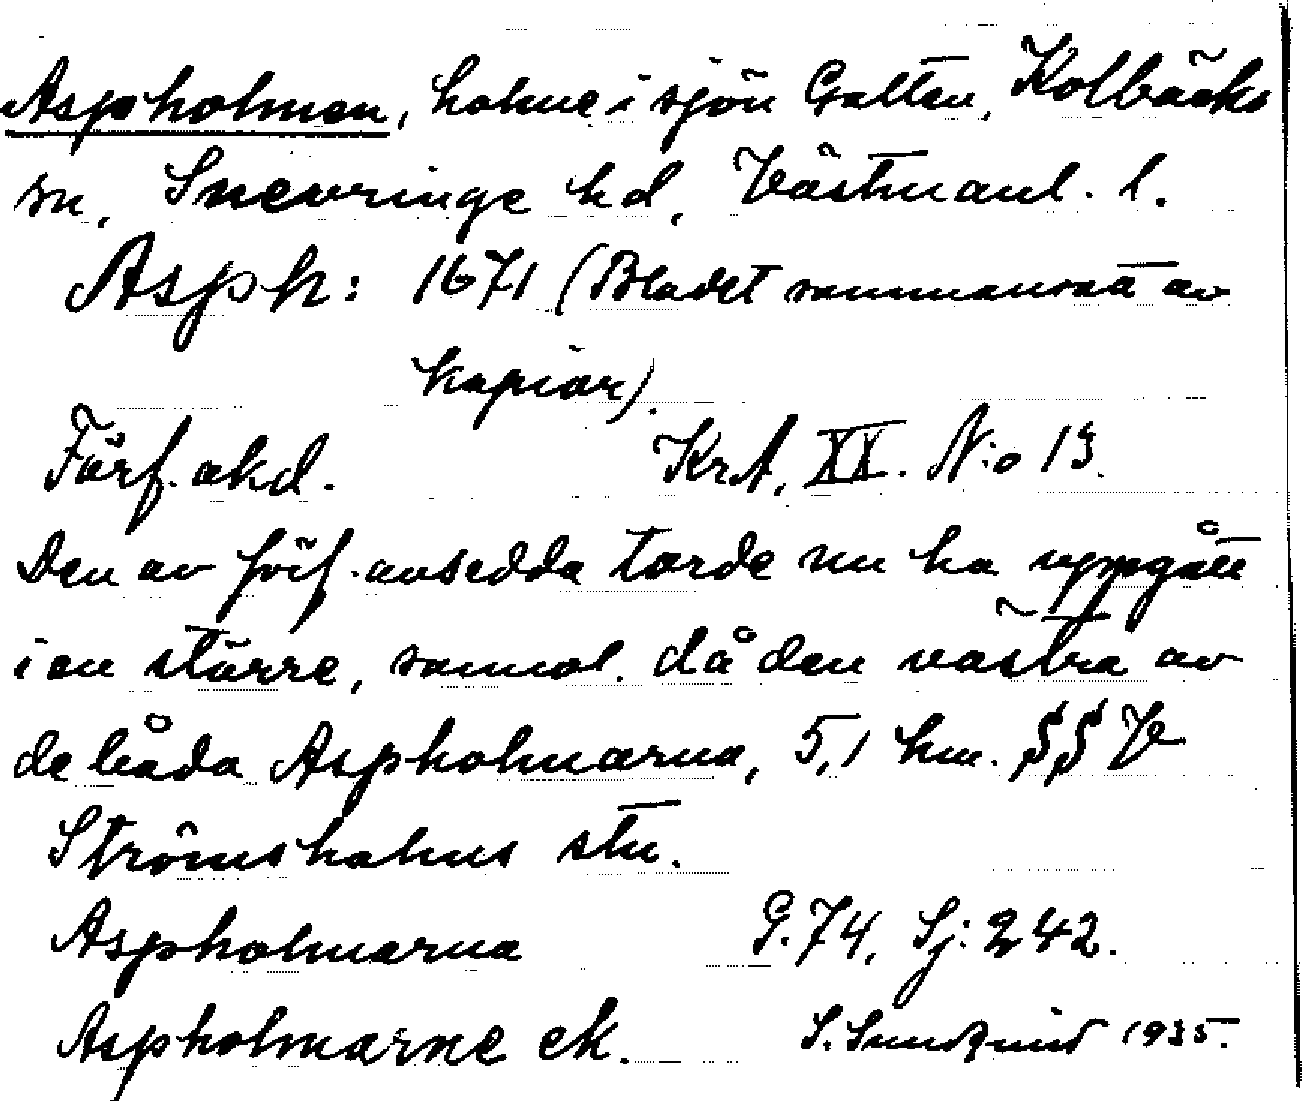 Aspholmen, holme i sjön Galten, Kolbäcks
sn, Snevringe hd, Västmanl. l.
Asph: 1671 (Bladet sammansatt av
kopior).
Förf. okd. Kr.A, XX. N:o 13.
Den av förf. avsedda torde nu ha uppgått
i en större, sannol. då den västra av
de båda Aspholmarna, 5,1 km. SSV
Strömsholms stn.
Aspholmarna G. 74, Sj: 242.
Aspholmarne ek. S. Sundqvist 1935.